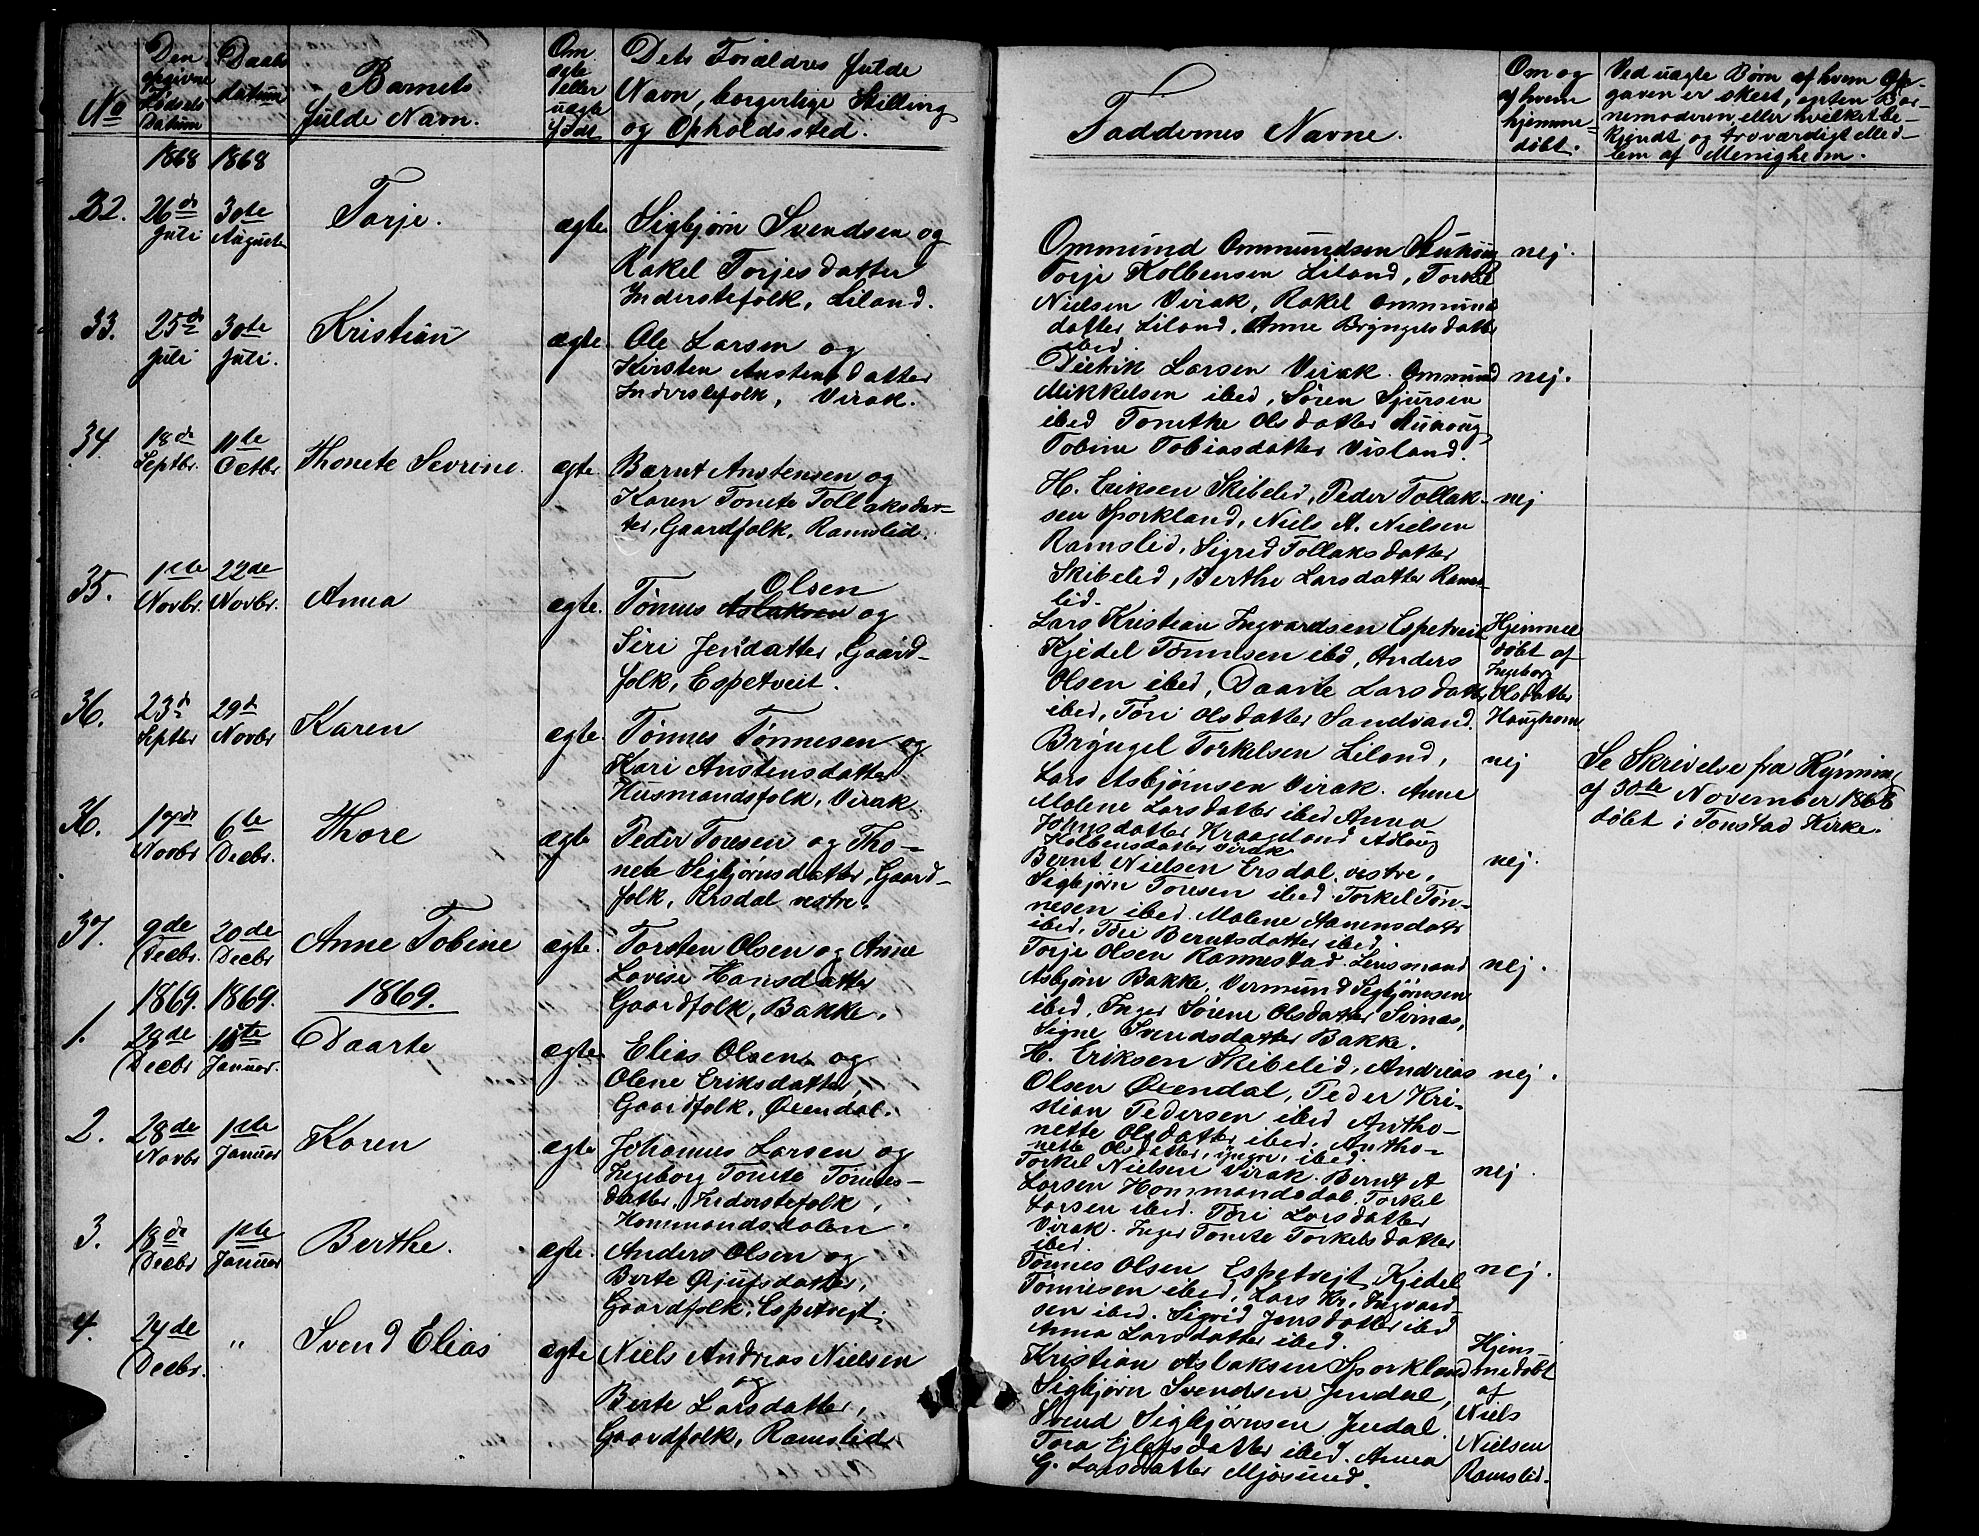 No
Den opgivne Fødsels Datum
Daabs datum
Barnets fulde Navn.
Om ægte eller uægte født
Dets Forældres fulde Navn, borgerlige Stilling og Opholdssted.
Faddernes Navne.
Om og af hvem hjemmedøbt.
Ved uægte Børn af hvem Opgaven er skeet, enten Barnemoderen eller hvilket bekjendt og troværdigt elledlem af Menigheden.
1868 1868
32. 26de Juli 30te August Torje. ægte.
Sigbjørn Svendsen og
Rakel Torjesdatter
Inderstefolk, Liland.
Ommund Ommundsen
Torje Kolbensen Liland, Torkel
Nielsen Virak, Rakel Ommunds
datter Liland, Anne Bryngelsdatter
ibed.
nej.
33. 25de Juli 30te Juli. Kristian ægte.
Ole Larsen og
Kirsten Anstensdatter
Inderstefolk, Virak.
Didrik Larsen Virak. Ommund
Mikkelsen ibed, Søren Sjursen
ibed Tonethe Olsdatter
Tobine Tobiasdatter Visland.
nej.
34. 18de Septbr. 11te Octbr Thonete Sevrine. ægte
Bærnt Anstensen og
Karen Tonete Tollaksdat-
ter, Gaardfolk, Ramslid.
H. Eriksen Skibelid, Peder Tollak-
sen Sporkland, Niels A. Nielsen
Ramslid, Sigrid Tollaksdatter
Skibelid, Berthe Larsdatter Rams-
lid.
nej
35. 1ste Novbr. 22de Novbr. Anna ægte.
Olsen
Tønnes Aslaksen og
Siri Jensdatter, Gaard-
folk, Espetveit.
Lars Kristian Ingvardsen Espetveit
Kjedel Tønnesen ibd, Anders
Olsen ibed, Daarte Larsdatter
ibed, Tøri Olsdatter Sandvand.
Hjemme
døbt af
Ingeborg
Olsdatter
Haughom
36. 23de Septbr 29de Novbr Karen ægte.
Tønnes Tønnesen og
Kari Anstensdatter
Husmandsfolk, Virak
Bryngel Torkelsen Liland,
Lars Asbjørnsen Virak. Anne
Malene Larsdatter ibed Anna
Johnsdatter Kraageland
Kolbensdatter Virak
nej
Se Skrivelse fra
af 30te November 1868
døbt i Tonstad Kirke.
36. 17de Novbr. 6te Decbr. Thore ægte
Peder Toresen og Tho-
nete Sigbjørnsdatter, Gaard-
folk, Ersdal vestre.
Bernt Nielsen Ersdal vestre,
Sigbjørn Toresen ibed. Torkel Tøn-
nesen ibed. Malene Aamensdatr
ibed, Tore Berntsdatter ibed.
nej.
37. 9de Decbr. 20de Decbr Anne Tobine ægte.
Torsten Olsen og Anne
Lovise Hansdatter
Gaardfolk, Bakke.
Torje Olsen Rannestad. Lensmand
Asbjørn Bakke, Vermund Sigbjørnsen
ibed, Inger Sørene Olsdatter Sirnæs,
Signe Svendsdatter Bakke.
nej.
1869. 1869. 1869.
1. 28de Decbr 1ste Januar. Daarte ægte
Elias Olsen og
Olene Eriksdatter
Gaardfolk, Øiendal.
H. Eriksen Skibelid, Andreas
Olsen Øiendal, Peder Kri-
stian Pedersen ibed Antho-
nette Olsdatter ibed, Antho-
nette Olsdatter, yngre, ibed.
nej.
2. 28de Novbr 1ste Januar Karen ægte
Johannes Larsen og
Ingeborg Tonete Tønnes-
datter, Inderstefolk,
Hommandsdalen.
Torkel Nielsen Virak. Bernt A
Larsen Hommandsdal. Torkel
Larsen ibed. Tøri Larsdatter
Virak. Inger Tonete Torkelsdatter
ibed.
nej
3. 18de Decbr 1ste Januar Berthe. ægte.
Anders Olsen og
Berte Gjufsdatter,
Gaardfolk, Espetvejt.
Tønnes Olsen Espetvejt, Kjedel
Tønnesen ibed, Lars Kr. Ingvard-
sen ibed. Sigrid Jensdatter ibed
Anna Larsdatter ibed.
nej.
4. 24de Decbr. " Svend Elias ægte
Niels Andreas Nielsen
og
Berte Larsdatter,
Gaardfolk, Ramslid
Kristian Aslaksen Sporkland
Sigbjørn Svendsen Jendal,
Svend Sigbjørnsen Jendal.
Tora Ejlefsdatter ibed. Anna
G. Larsdatter Mjøsund.
Hjem-
medøbt
af
Niels
Nielsen
Ramslid.